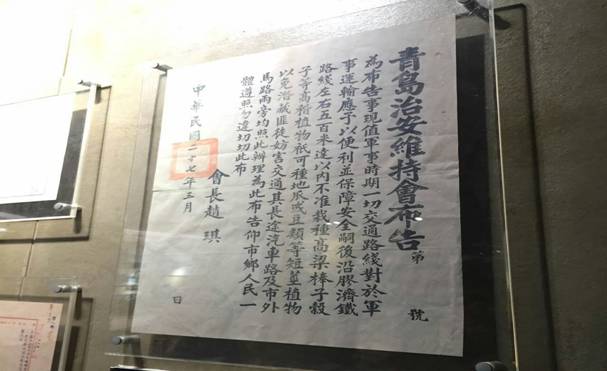 青島治安維持會布告 第 號
為布告事現值軍事時期一切交通路綫對於軍
事運輸應予以便利並保障安全嗣後沿膠濟鐵
路綫左右五百米達以內不准栽種高梁棒子穀
子等高稍植物祇可種地瓜或豆類等短莖植物
以免潛藏匪徒妨害交通其長途汽車路及市外
馬路兩旁均照此辦理為此布告仰市鄉人民一
體遵照勿違切切此布
會長趙 琪
中華民國二十七年三月 日